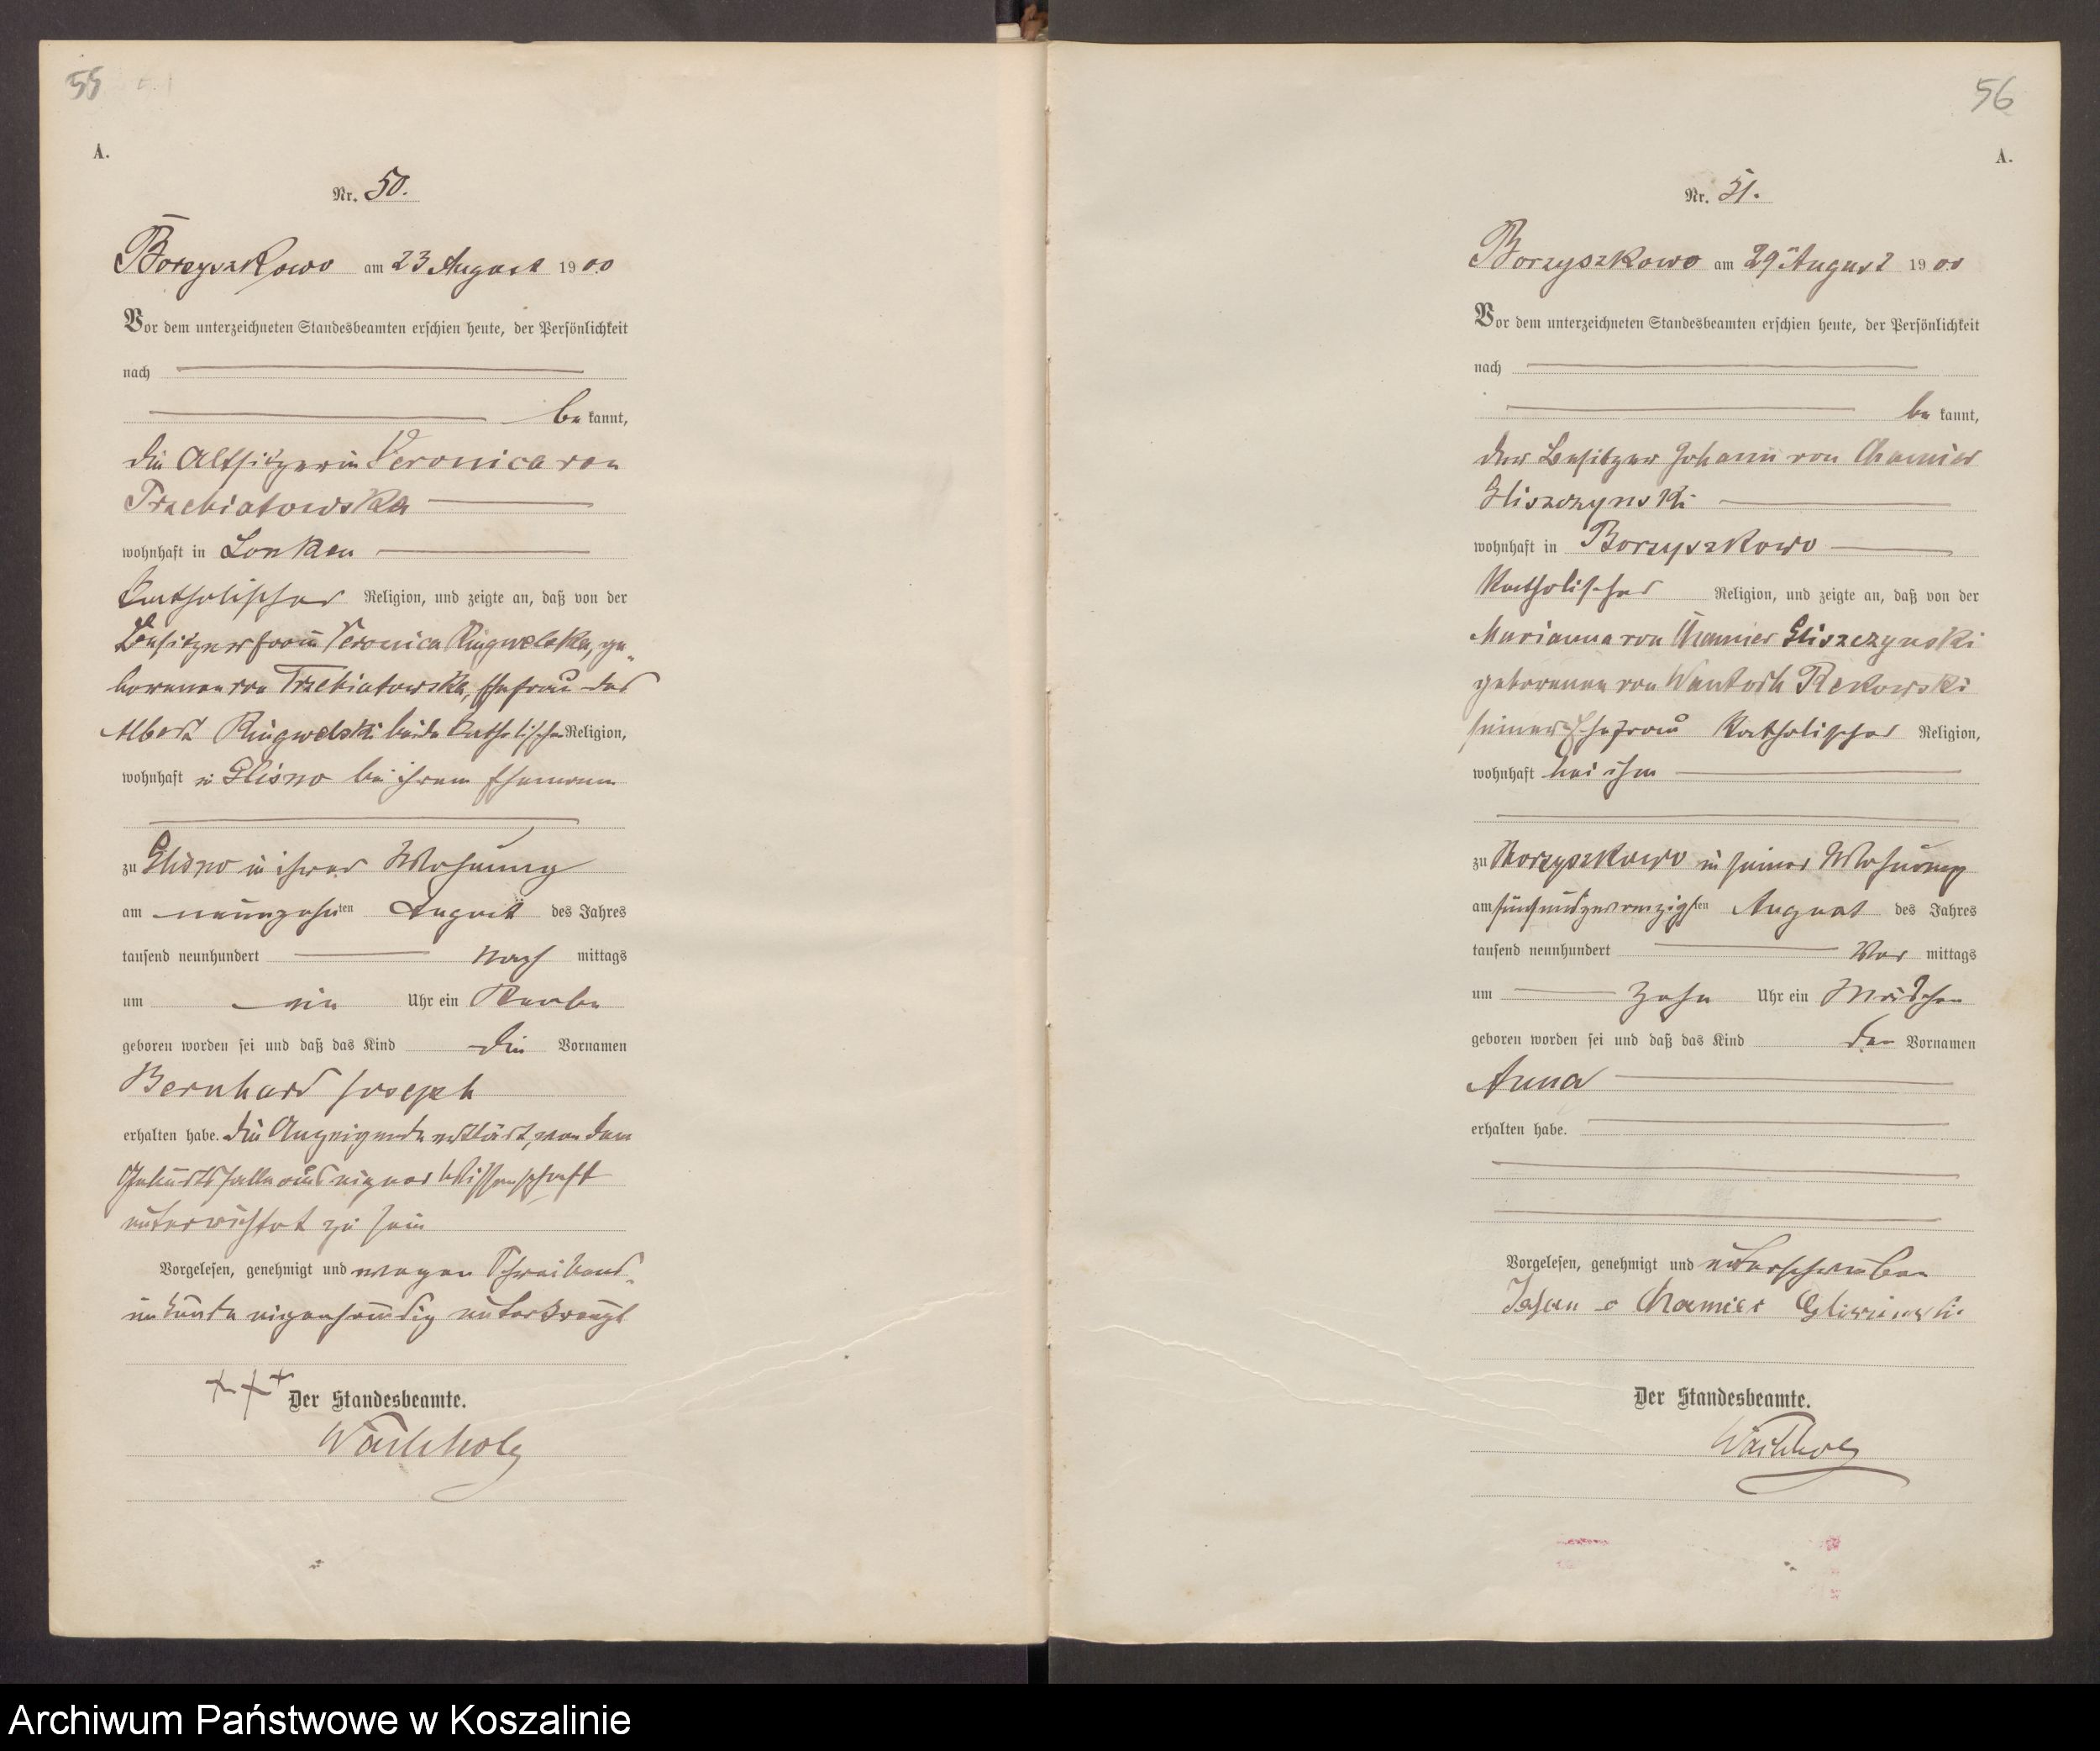 55
A.
Nr. 50.
Borzyszkowo am 23 August 1900
Vor dem unterzeichneten Standesbeamten erschien heute, der Persönlichkeit
nach
bekannt,
die Altsitzerin Veronica von
Trzebiatowska
wohnhaft in Lonken
katholischer Religion, und zeigte an, daß von der
Besitzerfrau Veronica Ringwelska, ge-
borenen von Trzebiatowska, Ehefrau des
Albert Ringwelski beide katholischer Religion,
wohnhaft in Glisno bei ihrem Ehemann
zu Glisno in ihrer Wohnung
am neunzehnten August des Jahres
tausend neunhundert nachmittags
um ein Uhr ein Knabe
geboren worden sei und daß das Kind die Vornamen
Bernhard Joseph
erhalten habe. Die Anzeigende erklärt, von dem
Geburtsfalle aus eigener Wissenschaft
unterrichtet zu sein
Vorgelesen, genehmigt und wegen Schreibens-
unkunde eigenhändig unterkreuzt
+++
Der Standesbeamte.
Wachholz
56
A.
Nr. 51.
Borzyszkowo am 29ten August 1900
Vor dem unterzeichneten Standesbeamten erschien heute, der Persönlichkeit
nach
bekannt,
der Besitzer Johann von Chamier
Gliszczynski
wohnhaft in Borzyszkowo
katholischer Religion, und zeigte an, daß von der
Marianna von Chamier Gliszczynski
geborenen von Wantoch Rekowski
seiner Ehefrau katholischer Religion,
wohnhaft bei ihm
zu Borzyszkowo in seiner Wohnung
am fünfundzwanzigsten August des Jahres
tausend neunhundert Vormittags
um zehn Uhr ein Mädchen
geboren worden sei und daß das Kind den Vornamen
Anna
erhalten habe.
Vorgelesen, genehmigt und unterschrieben
Johan v Chamier
Der Standesbeamte.
Wachholz
Archiwum Państwowe w Koszalinie